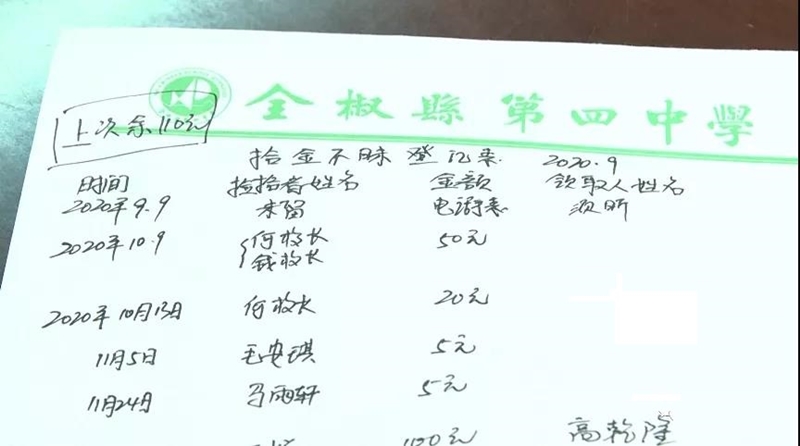 全椒縣第四中學
上次余110元
拾金不昧登记表 2020.9
时间 捡拾者姓名 金额 领取人姓名
2020年9.9 未留 电话表
2020年10.9 何校长 50元
钱校长
2020年10月13日 何校长 20元
11月5日 毛安琪 5元
11月24日 马雨轩 5元
100元 高乾隆